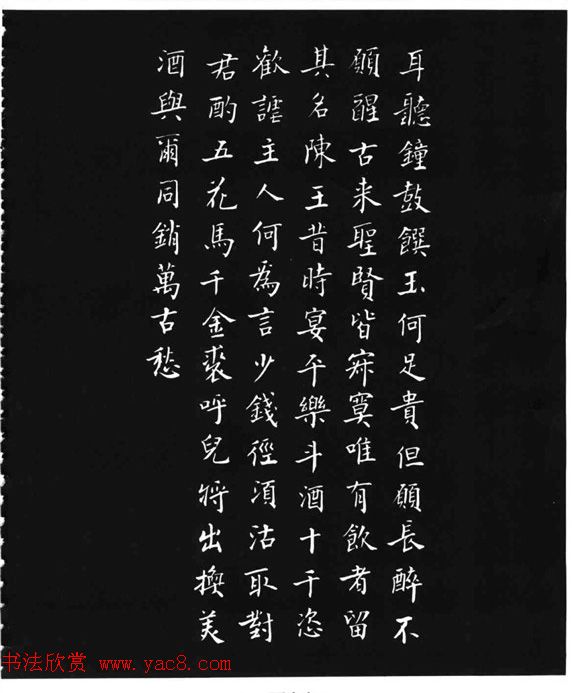 耳聽鐘鼓饌玉何足貴但願長醉不
願醒古来聖賢皆寂寞唯有飲者留
其名陳王昔時宴平樂斗酒十千恣
歡謔主人何為言少錢徑須沽取對
君酌五花馬千金裘呼兒將出換美
酒與爾同銷萬古愁
书法欣赏 www.yac8.com